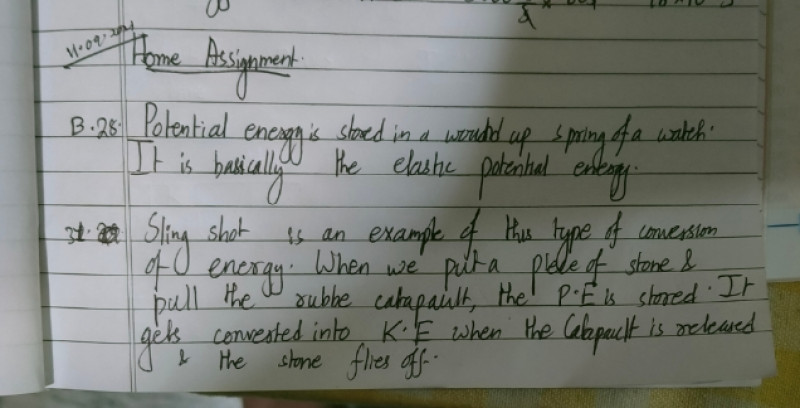 Home Assignment.
B.28. Potential energy is stored in a wouldd up spring of a watch.
It is basically the elastic potential energy.
31. Sling shot is an example of this type of conversion
of energy. When we put a piece of stone &
pull the rubbe catapault, the P.E is stored. It
gets converted into K.E when the Catapault is released
& the stone flies off.